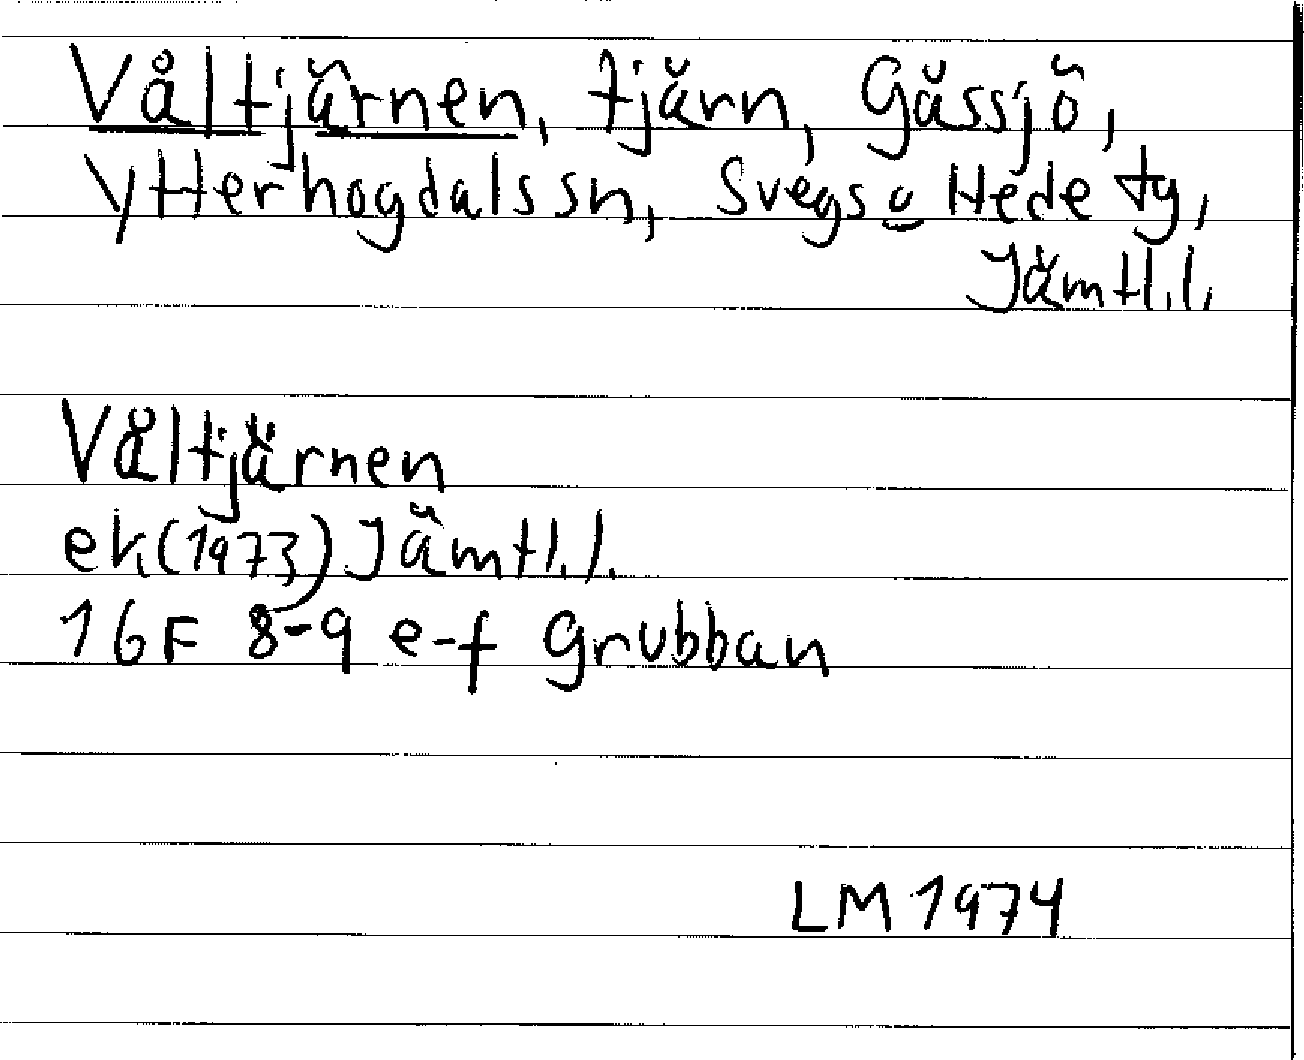 Våltjärnen, tjärn, Gässjö,
Ytterhogdals sn, Svegs o Hede tg,
Jämtl.l.
Våltjärnen
ek(1973) Jämtl.l.
16F 8-9 e-f Grubban
LM 1974